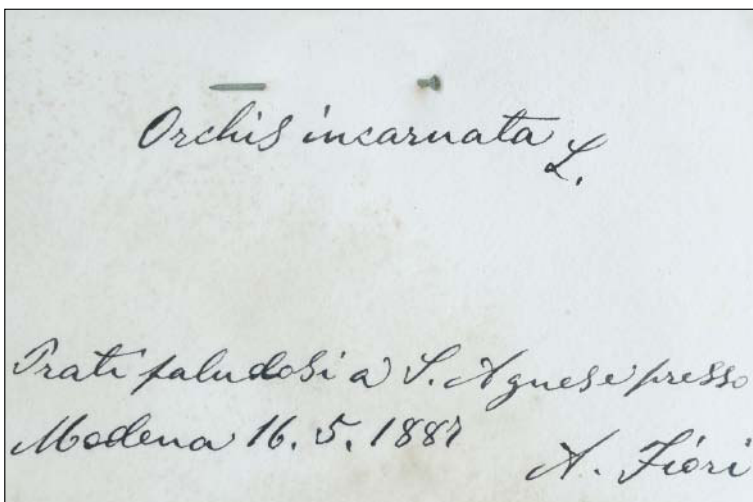 Orchis incarnata L.
Prati paludosi a S. Agnese presso
Modena 16. 5. 1887
A. Fiori